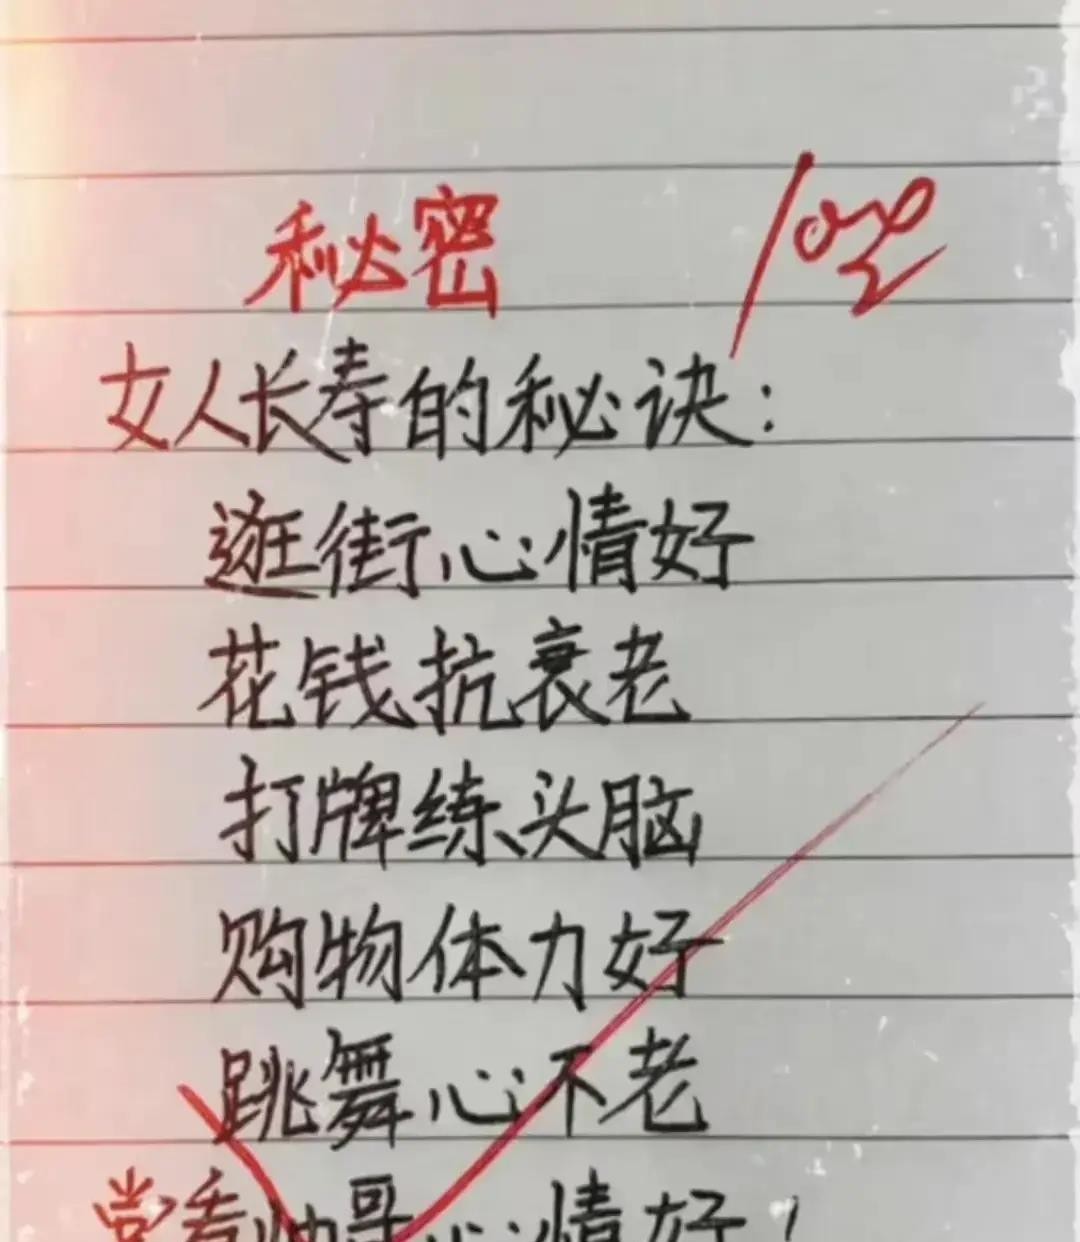 秘密 100
女人长寿的秘诀:
逛街心情好
花钱抗衰老
打牌练头脑
购物体力好
跳舞心不老
常看帅哥心情好!